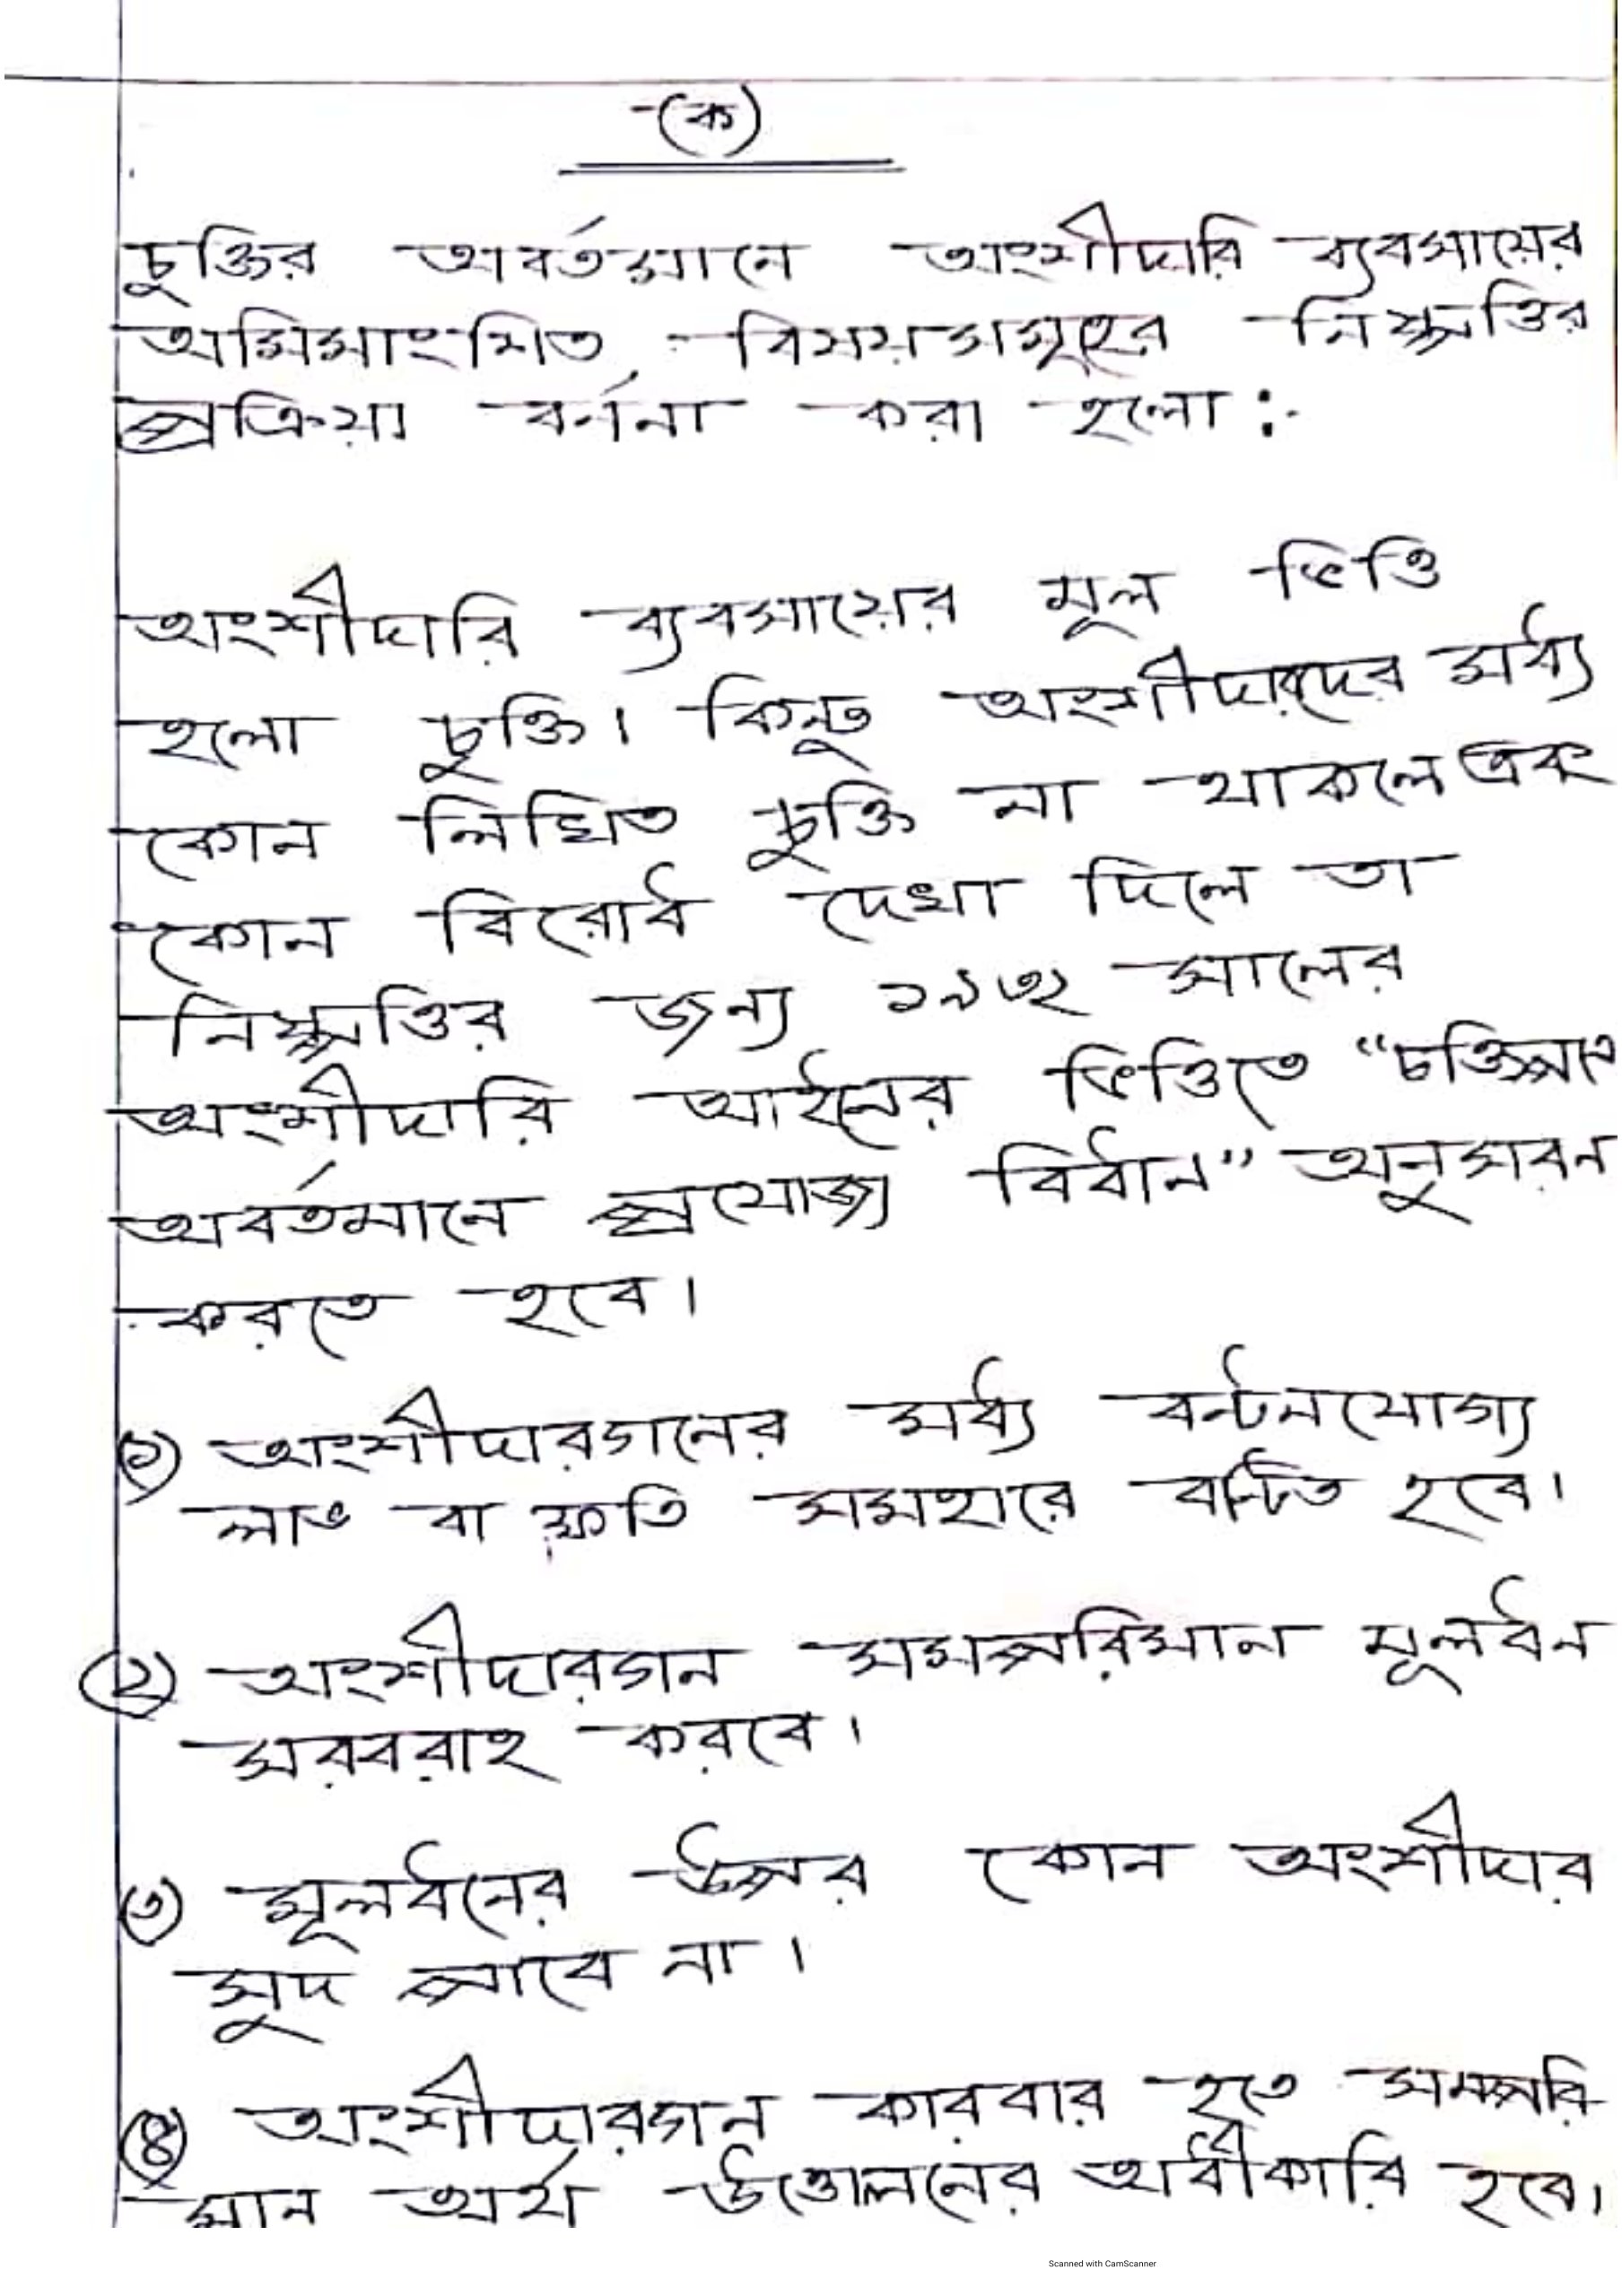 (ক)
চুক্তির অবর্তমানে অংশীদারি ব্যবসায়ের
অমিমাংশিত বিষয়সমূহের নিষ্পত্তির
প্রক্রিয়া বর্ননা করা হলো:-
অংশীদারি ব্যবসায়ের মূল ভিত্তি
হলো চুক্তি। কিন্তু অংশীদারদের মধ্যে
কোন লিখিত চুক্তি না থাকলে এবং
কোন বিরোধ দেখা দিলে তা
নিষ্পত্তির জন্য ১৯৩২ সালের
অংশীদারি আইনের ভিত্তিতে "চক্তিপত্র
অবর্তমানে প্রযোজ্য বিধান" অনুসরন
করতে হবে।
(১) অংশীদারগনের মধ্যে বন্টনযোগ্য
লাভ বা ক্ষতি সমহারে বন্টিত হবে।
(২) অংশীদারগন সমপরিমান মূলধন
সরবরাহ করবে।
(৩) মূলধনের উপর কোন অংশীদার
সুদ পাবে না।
(৪) অংশীদারগন কারবার হতে সমপরি-
মান অর্থ উত্তোলনের অধীকারি হবে।
Scanned with CamScanner